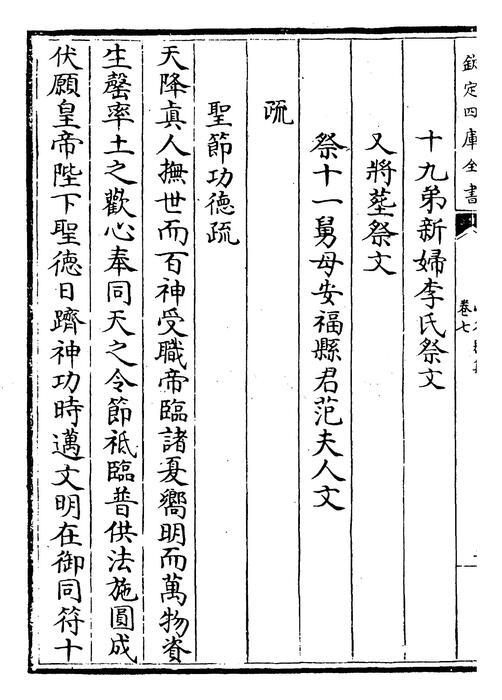 欽定四庫全書
卷七
十九弟新婦李氏祭文
又將塟祭文
祭十一舅母安福縣君范夫人文
疏
聖節功德疏
天降真人撫世而百神受職帝臨諸夏嚮明而萬物資
生罄率土之歡心奉同天之令節袛臨普供法施圓成
伏願皇帝陛下聖德日躋神功時邁文明在御同符十